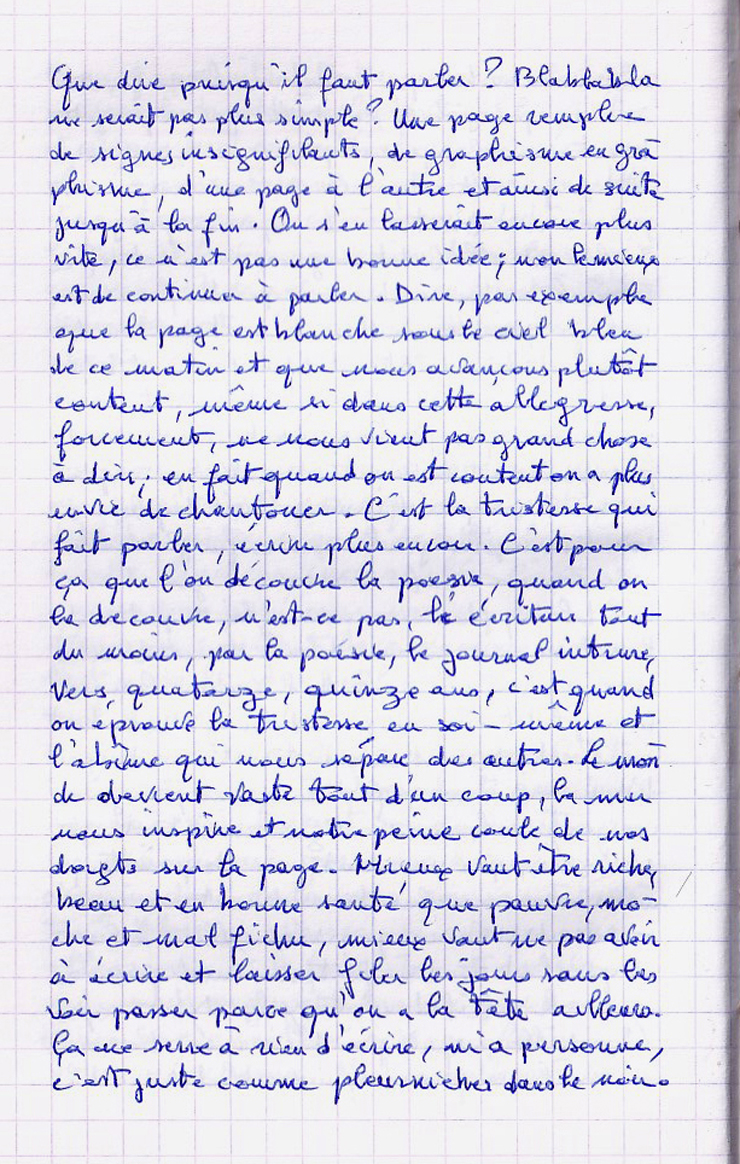 Que dire puisqu'il faut parler ? Blablabla
ne serait pas plus simple ? Une page remplie
de signes insignifiants, de graphisme en gra
phisme, d'une page à l'autre et ainsi de suite
jusqu'à la fin. On s'en lasserait encore plus
vite, ce n'est pas une bonne idée ; non le mieux
est de continuer à parler. Dire, par exemple
que la page est blanche sous le ciel bleu
de ce matin et que nous avançons plutôt
content, même si dans cette allegresse,
forcement, ne nous vient pas grand chose
à dire ; en fait quand on est content on a plus
envie de chantonner. C'est la tristesse qui
fait parler, écrire plus encore. C'est pour
ça que l'on découvre la poésie, quand on
la decouvre, n'est-ce pas, l'écriture tout
du moins, par la poésie, le journal intime,
vers quatorze, quinze ans, c'est quand
on éprouve la tristesse en soi-même et
l'abîme qui nous sépare des autres. Le mon
de devient vaste tout d'un coup, la mer
nous inspire et notre peine coule de nos
doigts sur la page. Mieux vaut être riche,
beau et en bonne santé que pauvre, mo-
che et mal fichu, mieux vaut ne pas avoir
à écrire et laisser filer les jours sans les
voir passer parce qu'on a la tête ailleurs.
Ça ne serre à rien d'écrire, ni a personne,
c'est juste comme pleurnicher dans le noir.